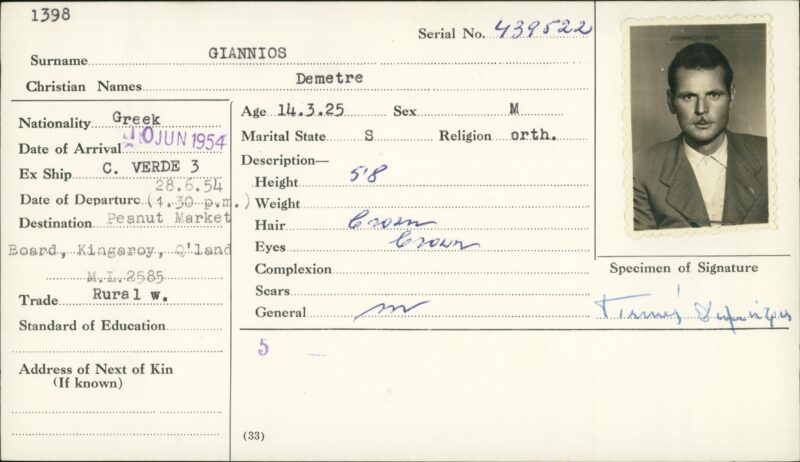 1398
Serial No. 439522
Surname GIANNIOS
Christian Names Demetre
Nationality Greek
Date of Arrival 10 JUN 1954
Ex Ship C. VERDE 3
28.6.54
Date of Departure (4.30 p.m.)
Destination Peanut Market
Board, Kingaroy, Q'land
M.L.2585
Trade Rural w.
Standard of Education
Address of Next of Kin
(If known)
Age 14.3.25 Sex M
Marital State S Religion orth.
Description—
Height 5'8
Weight
Hair brown
Eyes brown
Complexion
Scars
General
5
(33)
Specimen of Signature